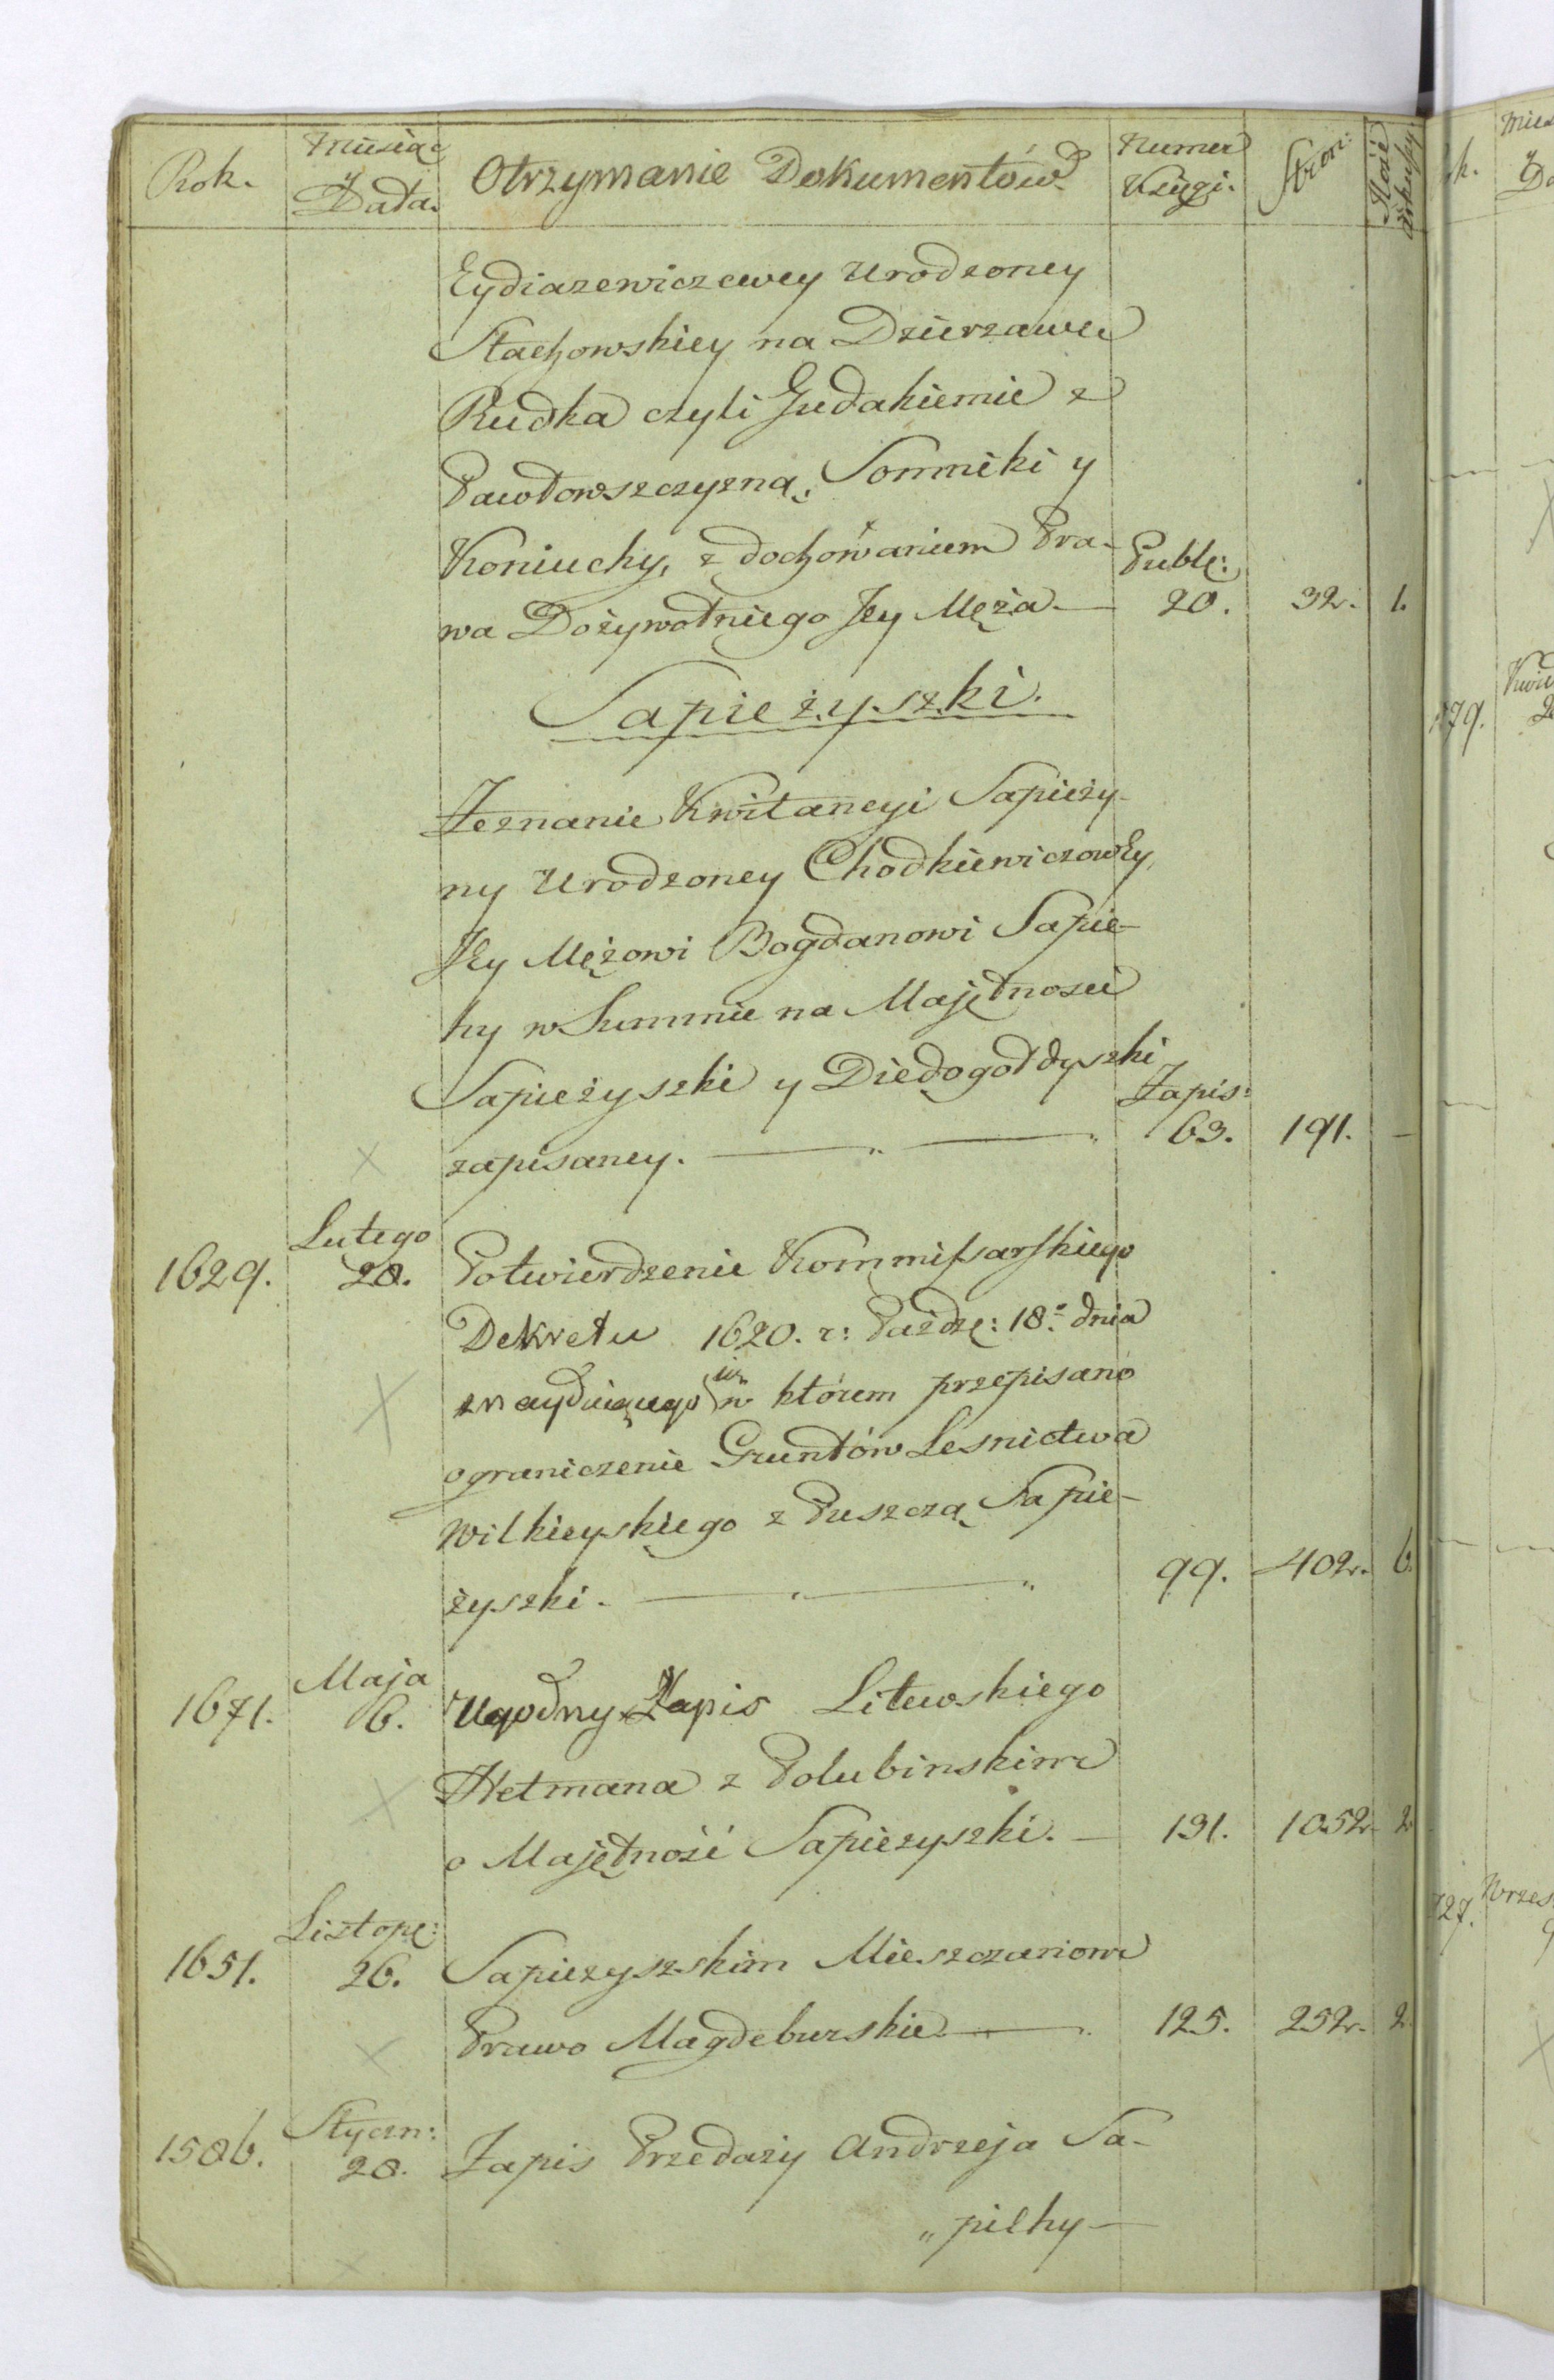 Rok. Miesiąc y Data. Otrzymanie Dokumentów Numer Księgi. Stron: Ilość arkuszy
Eydiazewiczewey Urodzoney
Stachowskiey na Dzierzawie
Rudka czyli Gudakiemie z
Pawłowszczyzną, Somniki y
Koniuchy, z dochowaniem Pra- Publ:
wa Dożywotniego Jey Męża — 20. 32. 1.
Sapieżyszki.
Zeznanie Kwitancyi Sapieży-
ny Urodzoney Chodkiewiczowey,
Jey Mężowi Bogdanowi Sapie-
hy w Summie na Majętnosci
Sapieżyszki y Diedogołdyszki Zapis:
zapisaney. — „ — „ 63. 191. —
1629. Lutego 28. Potwierdzenie Kommissarskiego
Dekretu 1620. r: Paźdz: 18. dnia
w którem przepisano
ograniczenie Gruntów Lesnictwa
Wilkieyskiego z Puszczą Sapie-
żyszki. — „ — „ 99. 402. 6.
1671. Maja 6. Ugodny Zapis Litewskiego
Hetmana z Polubinskim
o Majętność Sapieżyszki. — 131. 1052. 2
1651. Listop: 26. Sapieżyszskim Mieszczanom
Prawo Magdeburskie — „ — 125. 252. 2
1586. Styczn: 28. Zapis Przedaży Andrzeja Sa-
„ piehy —